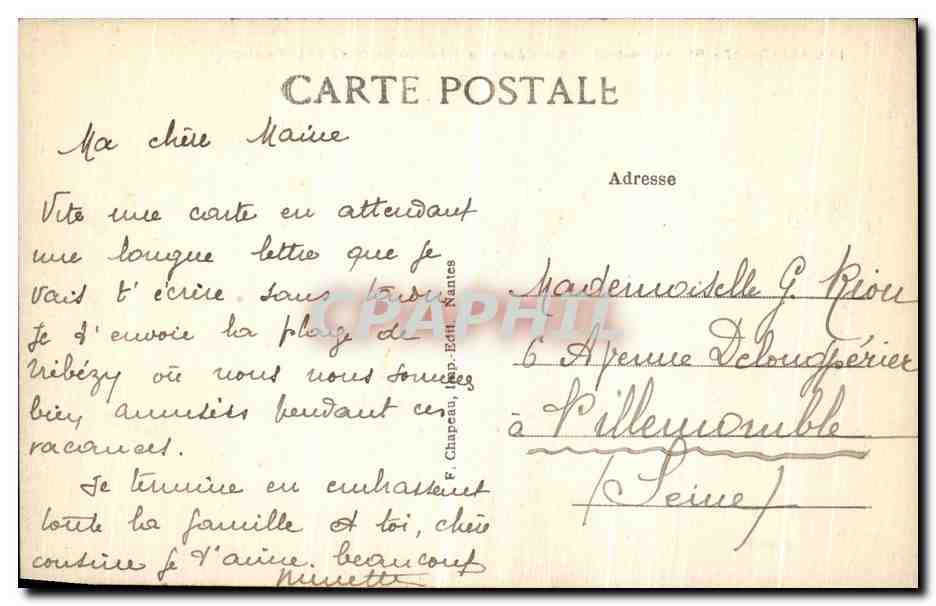 CARTE POSTALE
Ma chère Maine
Vite une carte en attendant
une longue lettre que je
vais t'écrire sans tarder
Je t'envoie la plage de
où nous nous sommes
bien amusées pendant ces
vacances.
Je termine en embrassant
toute la famille et toi, chère
cousine je t'aime beaucoup
Ninette
F. Chapeau, Imp.-Edit. Nantes
CPAPHIL
Adresse
Mademoiselle G. Riou
6 Avenue Delongpérier
à Villemomble
(Seine)